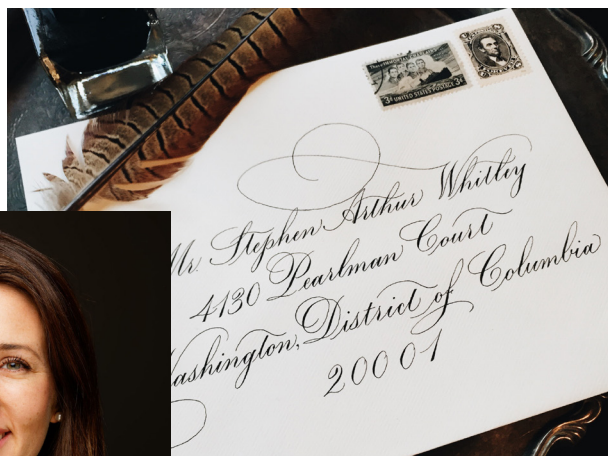 3¢ UNITED STATES POSTAGE 3¢
Mr. Stephen Arthur Whitley
4130 Pearlman Court
Washington, District of Columbia
20001